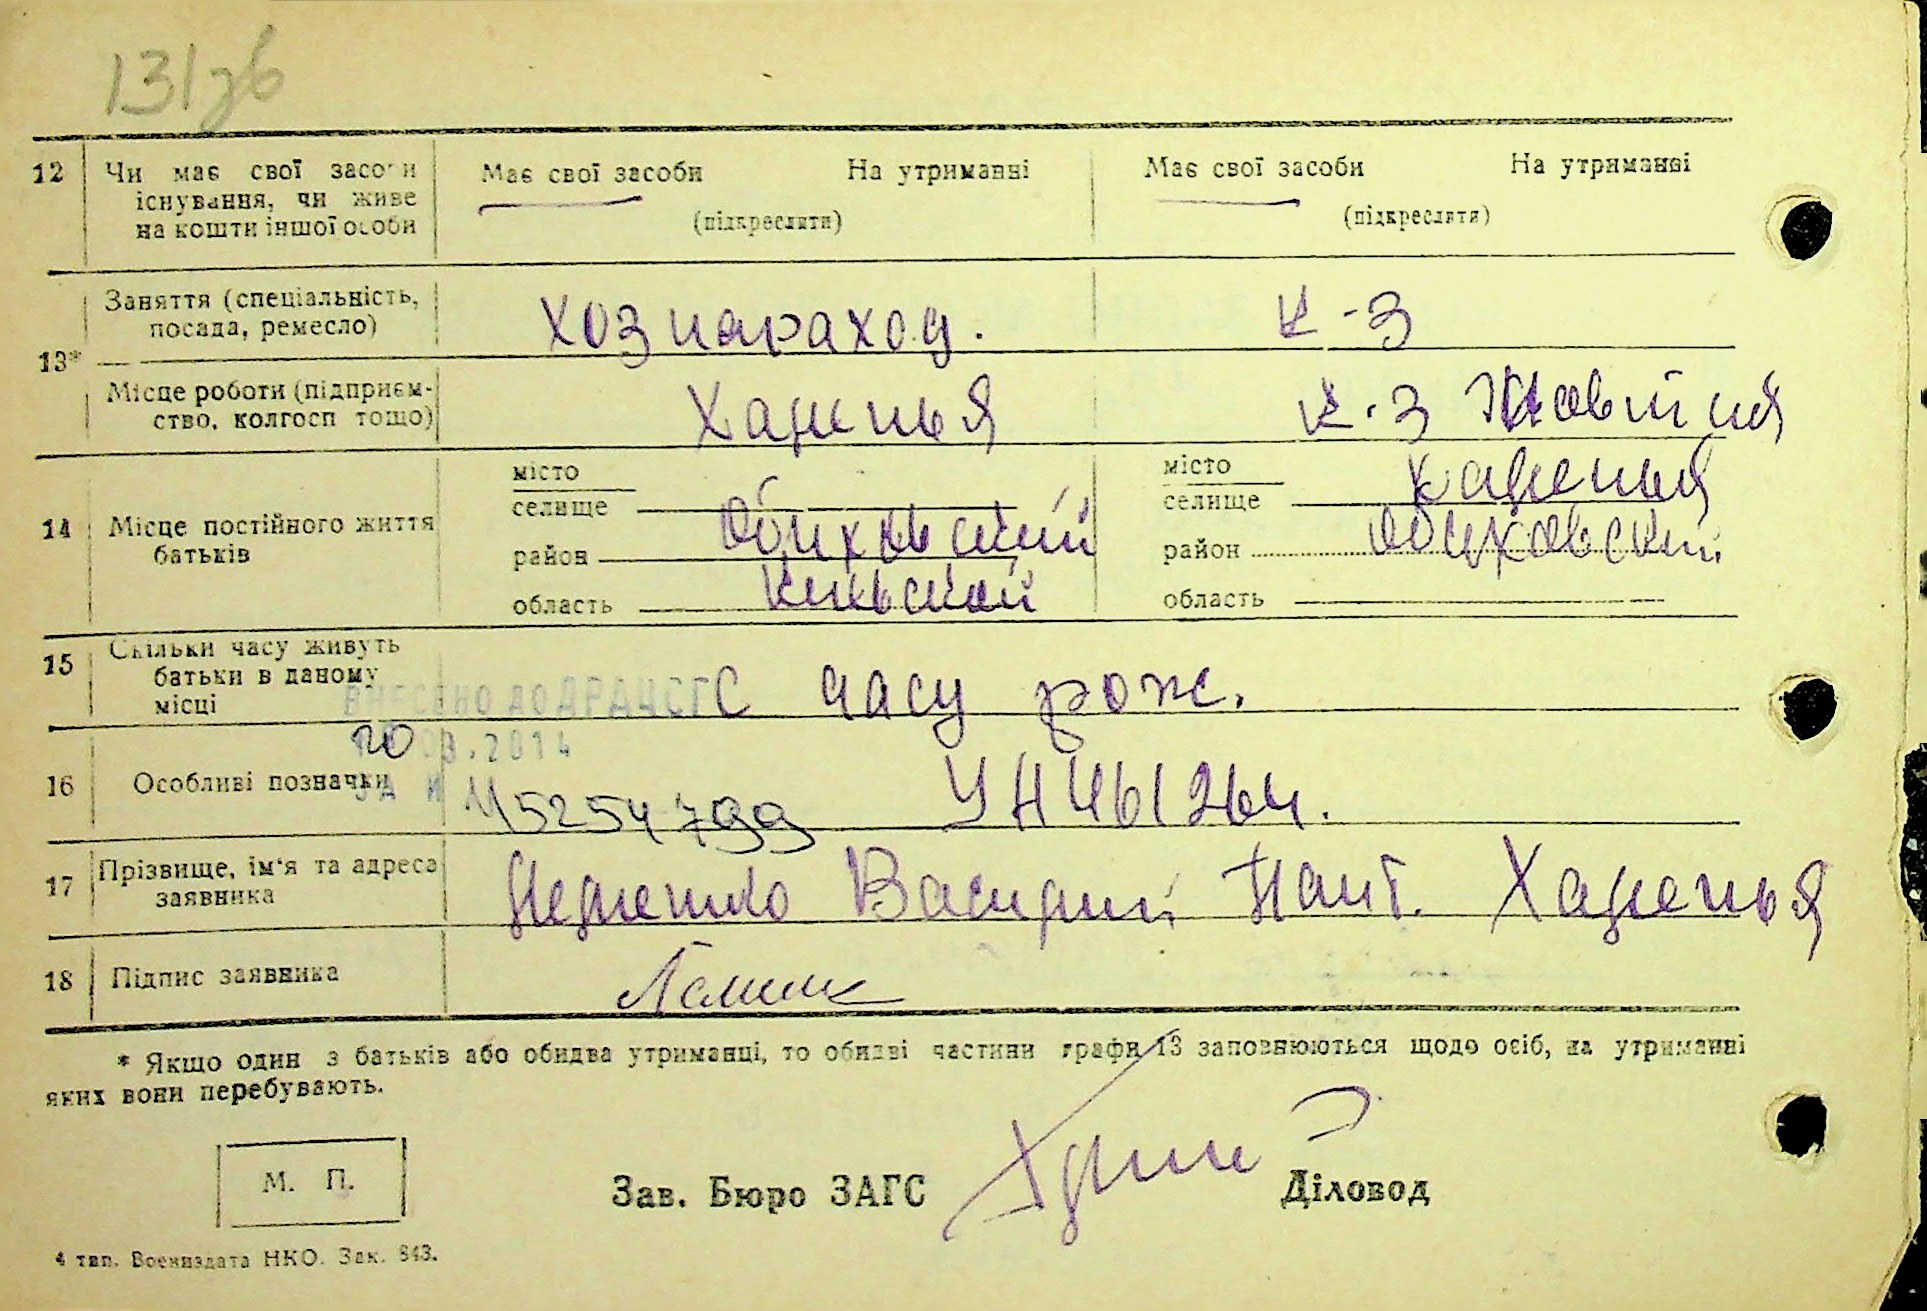 131 зв
12 Чи має свої засоби Має свої засоби На утриманні Має свої засоби На утриманні
існування, чи живе (підкреслити) (підкреслити)
на кошти іншої особи
13* Заняття (спеціальність, К-З
посада, ремесло)
Місце роботи (підприєм- Халепья К-З
ство, колгосп тощо)
14 Місце постійного життя батьків
місто місто Халепья
селище селище
район район Обуховский
область область
15 Скільки часу живуть
батьки в даному С часу рож.
місці
ВНЕСЕНО ДО ДРАЦСГ
03.2014
16 Особливі позначки 15254799 УН 461264.
17 Прізвище, ім'я та адреса Василий Халепья
заявника
18 Підпис заявника
* Якщо один з батьків або обидва утриманці, то обидві частини графи 13 заповнюються щодо осіб, на утриманні
яких вони перебувають.
М. П.
Зав. Бюро ЗАГС Діловод
4 тип. Воениздата НКО. Зак. 843.